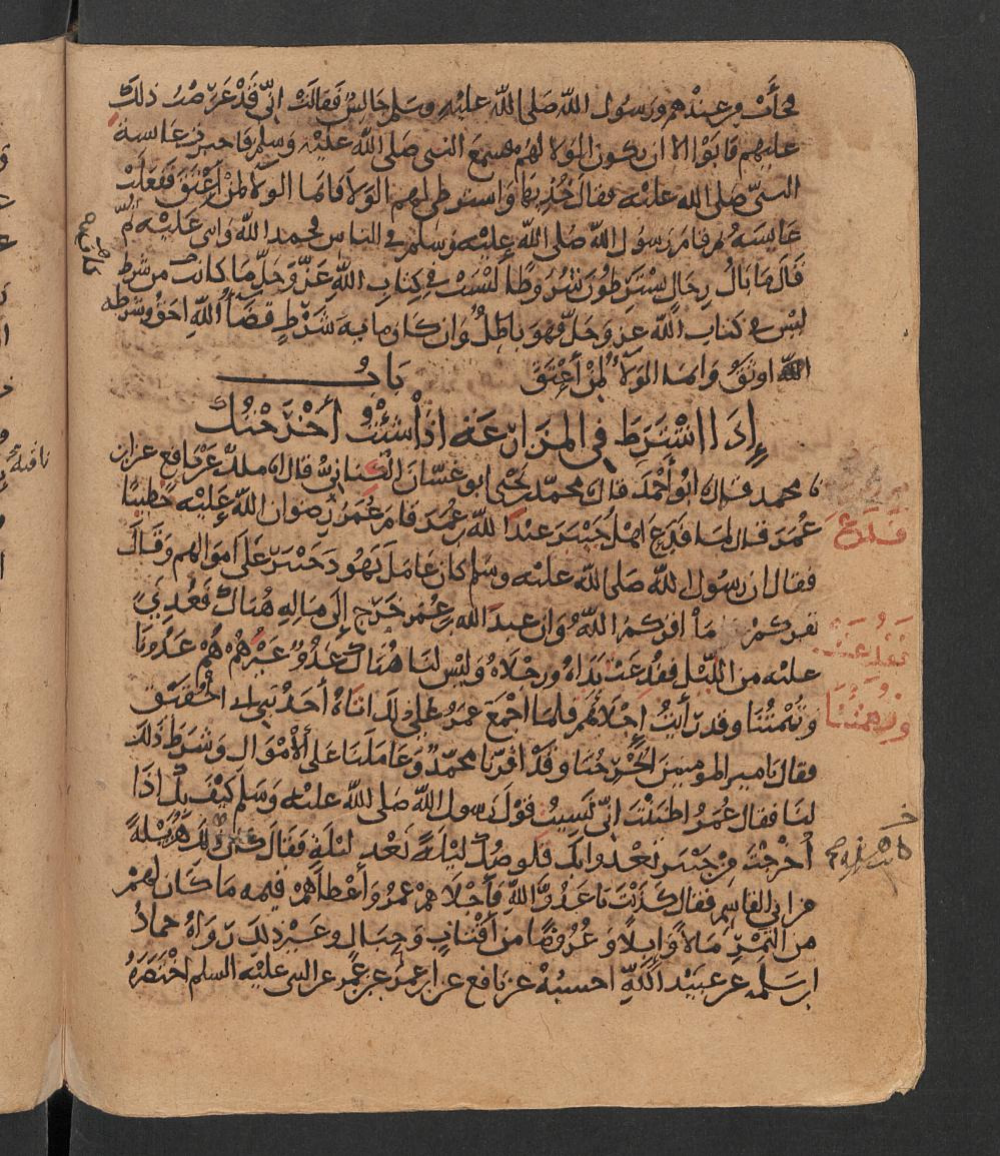 فجأت من عندهم ورسول الله صلى الله عليه وسلم جالس فقالت اني قد عرضت ذلك
عليهم فابوا الا ان يكون الولا لهم فسمع النبي صلى الله عليه وسلم فاخبرت عايشة
النبي صلى الله عليه فقال خذيها واشترطي لهم الولا فانما الولا لمن اعتق ففعلت
عايشة ثم قام رسول الله صلى الله عليه وسلم في الناس فحمد الله واثنى عليه ثم
قال ما بال رجال يشترطون شروطا ليست في كتاب الله عز وجل ما كانت من شرط
ليس في كتاب الله عز وجل فهو باطل وان كان ماية شرط قضاء الله احق وشرط
الله اوثق وانما الولا لمن أعتق باب
إذا اشترط في المزارعة اذا شئت أخرجتك
محمد قال ابو أحمد قال محمد بن يحيى ابو غسان الكناني قال ملك عن نافع عن ابن
عمر قال لما فدع اهل خيبر عبد الله بن عمر قام عمر رضوان الله عليه خطيبا
فقال ان رسول الله صلى الله عليه وسلم كان عامل يهود خيبر على اموالهم وقال
نقركم ما اقركم الله وان عبد الله بن عمر خرج إلى ماله هناك فعدي
عليه من الليل ففدعت يداه ورجلاه وليس لنا هناك عدو غيرهم هم عدونا
وتهمتنا وقد رأيت إجلاهم فلما أجمع عمر على ذلك اتاه أحد بني ابي الحقيق
فقال يا امير المومنين اتخرجنا وقد اقرنا محمد وعاملنا على الأموال وشرط ذلك
لنا فقال عمر اظننت اني نسيت قول رسول الله صلى الله عليه وسلم كيف بك اذا
أخرجت من خيبر تعدوا بك قلوصك ليلة بعد ليلة فقال كان ذلك هزيلة
من ابي القاسم فقال كذبت يا عدو الله فأجلاهم عمر وأعطاهم قيمة ما كان لهم
من الثمر مالا وإبلا وعروضا من أقتاب وحبال وغير ذلك رواه حماد
ابن سلمة عن عبيد الله احسبه عن نافع عن ابن عمر عن عمر عن النبي عليه السلم اختصره
فدع
ففدعت
وتهمتنا
نافية